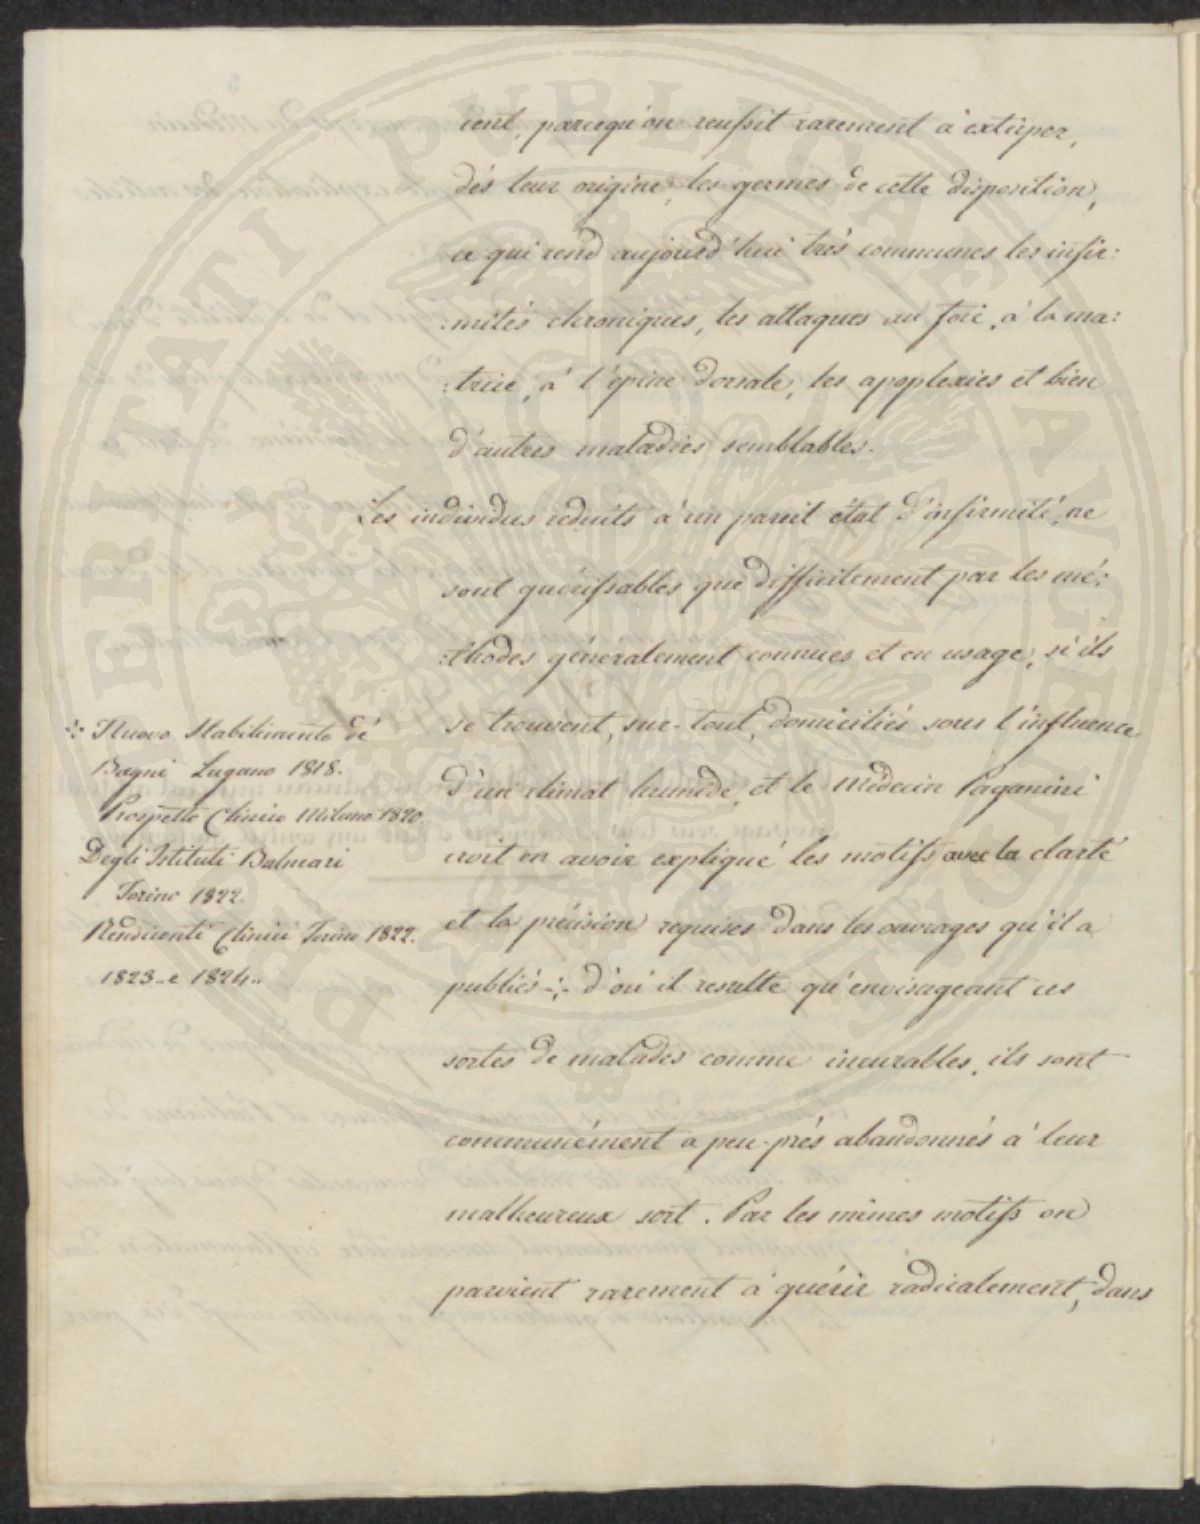 ient, parcequ'on reussit rarement à extirper,
dés leur origine, les germes de cette disposition,
ce qui rend aujourd'hui très communes les infir:
:mités chroniques, les attaques au foie, à la ma:
:trice, à l'épine dorsale, les apoplexies et bien
d'autres maladies semblables.
Les individus réduits à un pareil état d'infirmité, ne
sont guérissables que difficilement par les mé:
:thodes généralement connues et en usage, si ils
se trouvent, sur-tout, domiciliés sous l'influence
d'un climat humide, et le Médecin Paganini
croit en avoir expliqué les motifs avec la clarté
et la précision requises dans les ouvrages qu'il a
publiés -:- d'où il resulte qu'envisageant ces
sortes de malades comme incurables, ils sont
communément a peu-prés abandonnés à leur
malheureux sort. Par les mêmes motifs on
parvient rarement à guérir radicalement, dans
-:- Nuovo Stabilimento dé
Bagni Lugano 1818.
Prospetto Clinico Milano 1820
Degli Istituti Balneari
Torino 1822.
Rendiconti Clinici Torino 1822.
1823 - e 1824..
PERITATI PUBLICAE AUGE